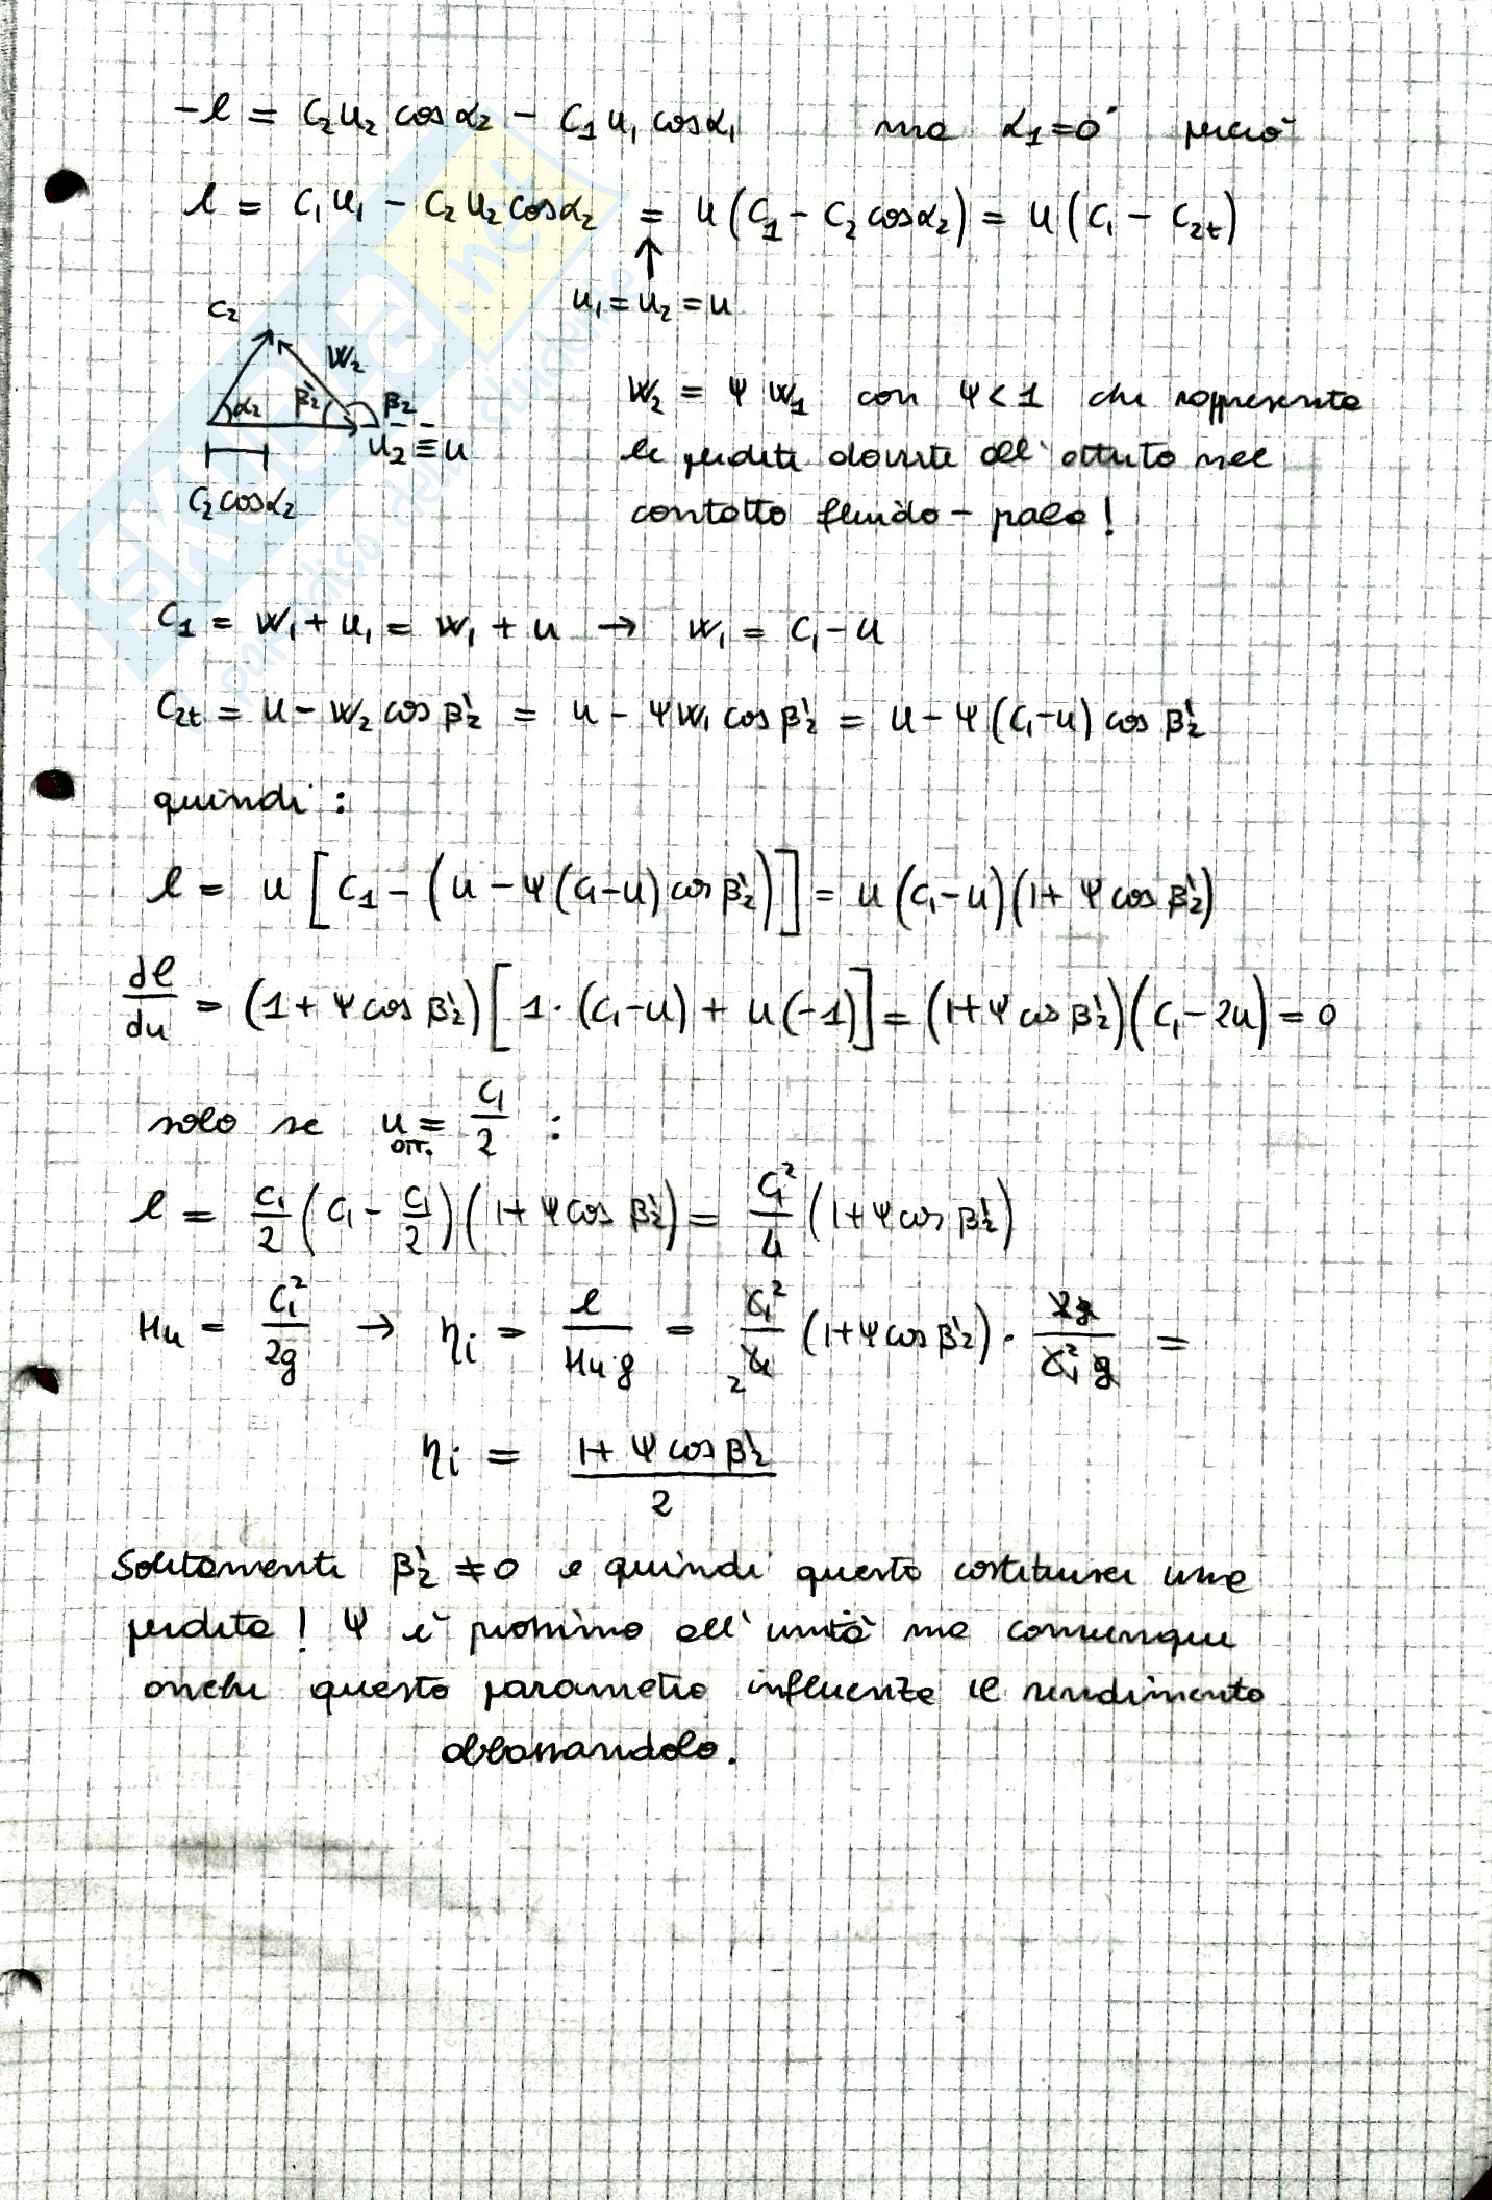 -l = C₂u₂ cosα₂ - C₁u₁ cosα₁ ma α₁=0° perciò
l = C₁u₁ - C₂u₂cosα₂ = u(C₁ - C₂cosα₂) = u(C₁ - C₂t)
↑
u₁=u₂=u
C₂
W₂
α₂ β₂' β₂
u₂≡u
C₂cosα₂
W₂ = ψ W₁ con ψ<1 che rappresenta
le perdite dovute all'attrito nel
contatto fluido - pala!
C₁ = W₁+u₁ = W₁+u → W₁ = C₁-u
C₂t = u - W₂cosβ₂' = u - ψW₁cosβ₂' = u - ψ(C₁-u)cos β₂'
quindi:
l = u[C₁-(u-ψ(C₁-u)cosβ₂')] = u(C₁-u)(1+ψcosβ₂')
dl/du = (1+ψcosβ₂')[1·(C₁-u)+u(-1)] = (1+ψcosβ₂')(C₁-2u) = 0
solo se u ott. = C₁/2 :
l = C₁/2 (C₁ - C₁/2)(1+ψcosβ₂') = C₁²/4 (1+ψcosβ₂')
Hu = C₁²/2g → ηi = l/Hu g = C₁²/4 2 (1+ψcosβ₂') · 2g/C₁² g =
ηi = 1+ψcosβ₂'/2
Solitamente β₂' ≠ 0 e quindi questo costituisce una
perdita! ψ è prossimo all'unità ma comunque
anche questo parametro influenza il rendimento
abbassandolo.
SKUOLA.net
il paradiso dello studente